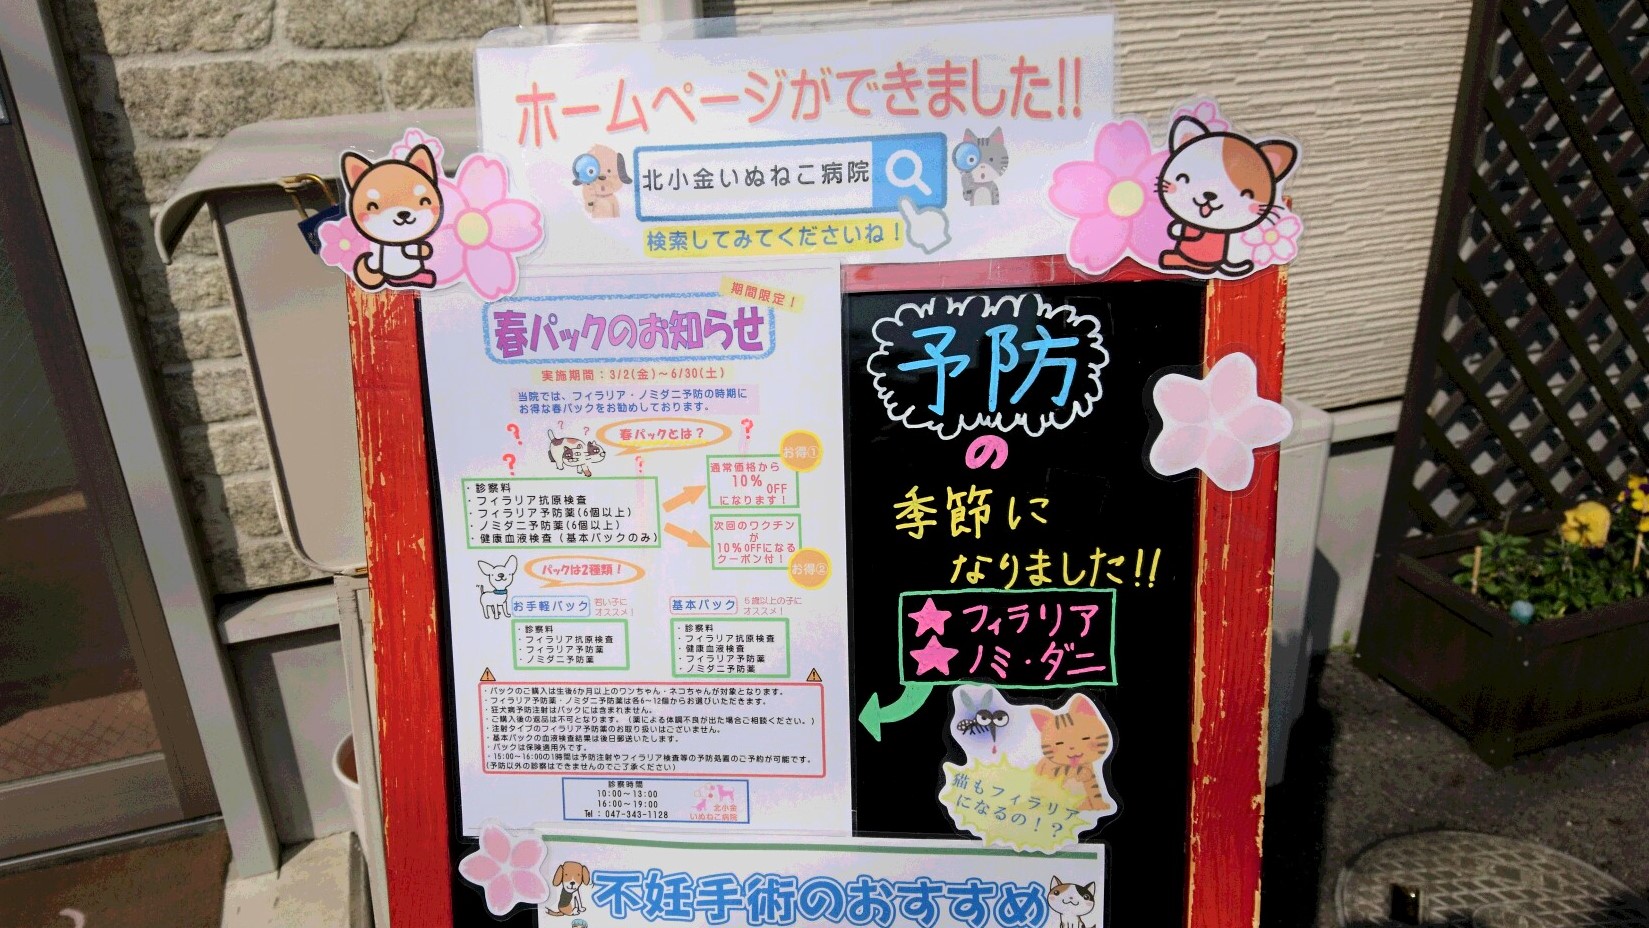 ホームページができました!!
北小金いぬねこ病院
検索してみてくださいね！
期間限定！
春パックのお知らせ
実施期間：3/2(金)～6/30(土)
当院では、フィラリア・ノミダニ予防の時期に
お得な春パックをお勧めしております。
春パックとは？
・診察料
・フィラリア抗原検査
・フィラリア予防薬(6個以上)
・ノミダニ予防薬(6個以上)
・健康血液検査（基本パックのみ)
お得①
通常価格から
10％OFF
になります！
次回のワクチン
が
10％OFFになる
クーポン付！
お得②
パックは2種類！
お手軽パック
若い子に
オススメ！
・診察料
・フィラリア抗原検査
・フィラリア予防薬
・ノミダニ予防薬
基本パック
5歳以上の子に
オススメ！
・診察料
・フィラリア抗原検査
・健康血液検査
・フィラリア予防薬
・ノミダニ予防薬
・パックのご購入は生後6か月以上のワンちゃん・ネコちゃんが対象となります。
・フィラリア予防薬・ノミダニ予防薬は各6～12個からお選びいただきます。
・狂犬病予防注射はパックには含まれません。
・ご購入後の返品は不可となります。（薬による体調不良が出た場合ご相談ください。)
・注射タイプのフィラリア予防薬のお取り扱いはございません。
・基本パックの血液検査結果は後日郵送いたします。
・パックは保険適用外です。
・15:00～16:00の1時間は予防注射やフィラリア検査等の予防処置のご予約が可能です。
(予防以外の診察はできませんのでご了承ください)
診察時間
10:00～13:00
16:00～19:00
Tel：047-343-1128
北小金
いぬねこ病院
予防
の
季節に
なりました!!
★フィラリア
★ノミ・ダニ
猫もフィラリア
になるの！？
不妊手術のおすすめ